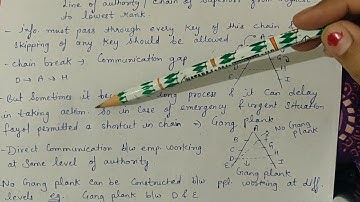 Line of authority / chain of superiors from highest
to lowest rank.
- Info. must pass through every key of this chain &
skipping of any key should be allowed.
- chain break → Communication gap
D → A → H
G
H
I
- But Sometimes it long process & it can delay
in taking action. So in case of emergency & urgent situation
fayol permitted a shortcut in chain → Gang plank
- Direct Communication b/w emp. working
at same level of authority
A
No Gang
plank
E
D
H
I
Gang plank
No Gang plank can be constructed b/w ppl. working at diff.
levels eg. Gang plank b/w D & E